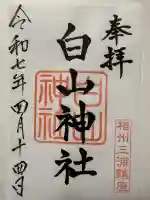 奉拝
白山神社
令和七年四月十四日
白山神社
相州三浦鎮座